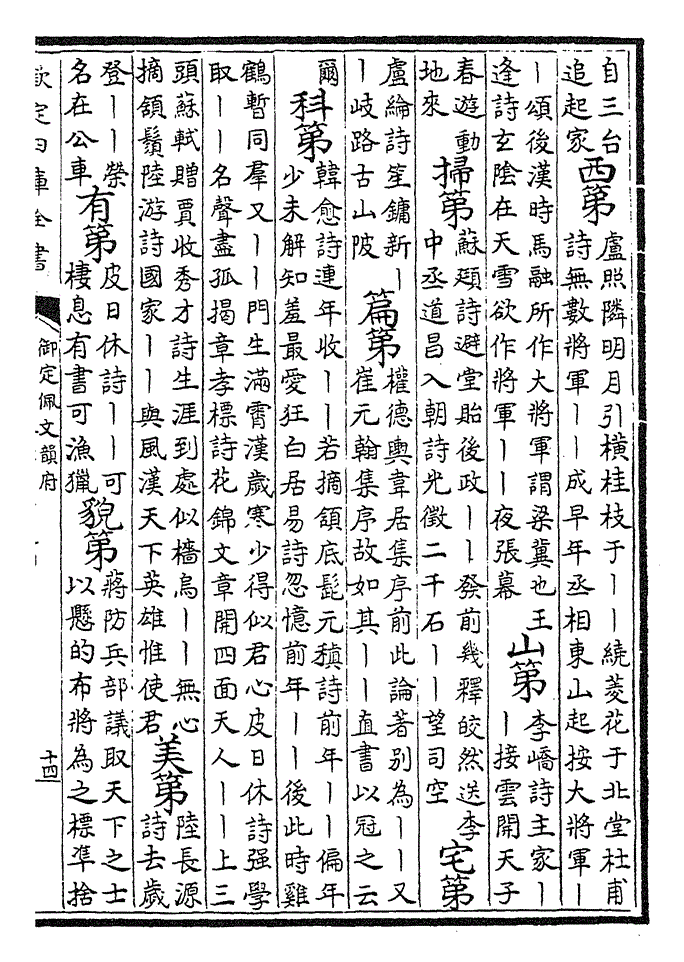 自三台
追起家
西第
盧照隣明月引横桂枝于丨丨繞菱花于北堂杜甫
詩無數將軍丨丨成早年丞相東山起按大將軍丨
丨頌後漢時馬融所作大將軍謂梁冀也王
逢詩玄陰在天雪欲作將軍丨丨夜張幕
山第
李嶠詩主家丨
丨接雲開天子
春遊動
地來
掃第
蘇頲詩避堂貽後政丨丨發前幾釋皎然送李
中丞道昌入朝詩光徵二千石丨丨望司空
宅第
盧綸詩笙鏞新丨
丨岐路古山陂
篇第
權德輿韋居集序前此論著别為丨丨又
崔元翰集序故如其丨丨直書以冠之云
爾
科第
韓愈詩連年收丨丨若摘頷底髭元稹詩前年丨丨偏年
少未解知羞最愛狂白居易詩忽憶前年丨丨後此時雞
鶴暫同羣又丨丨門生滿霄漢歲寒少得似君心皮日休詩强學
取丨丨名聲盡孤揭章孝標詩花錦文章開四面天人丨丨上三
頭蘇軾贈賈收秀才詩生涯到處似檣烏丨丨無心
摘頷鬚陸游詩國家丨丨與風漢天下英雄惟使君
美第
陸長源
詩去歲
登丨丨榮
名在公車
有第
皮日休詩丨丨可
棲息有書可漁獵
貌第
蔣防兵部議取天下之士
以懸的布將為之標凖捨
欽定四庫全書
御定佩文韻府
十四